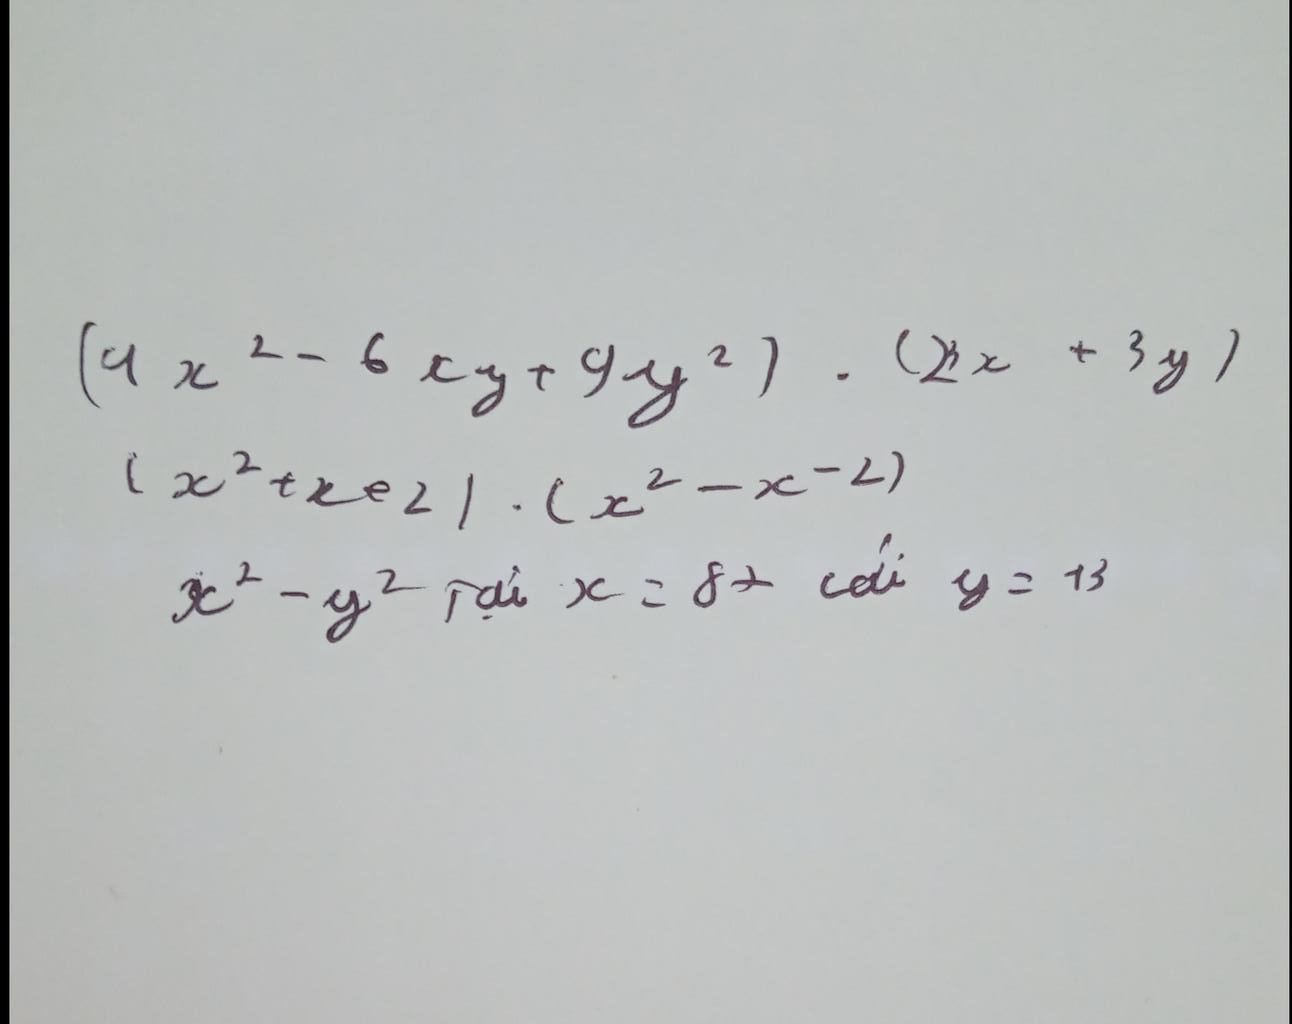 (4x² - 6xy + 9y²) . (2x + 3y)
(x² + x 2) . (x² - x - 2)
x² - y² Tại x = 87 y = 13